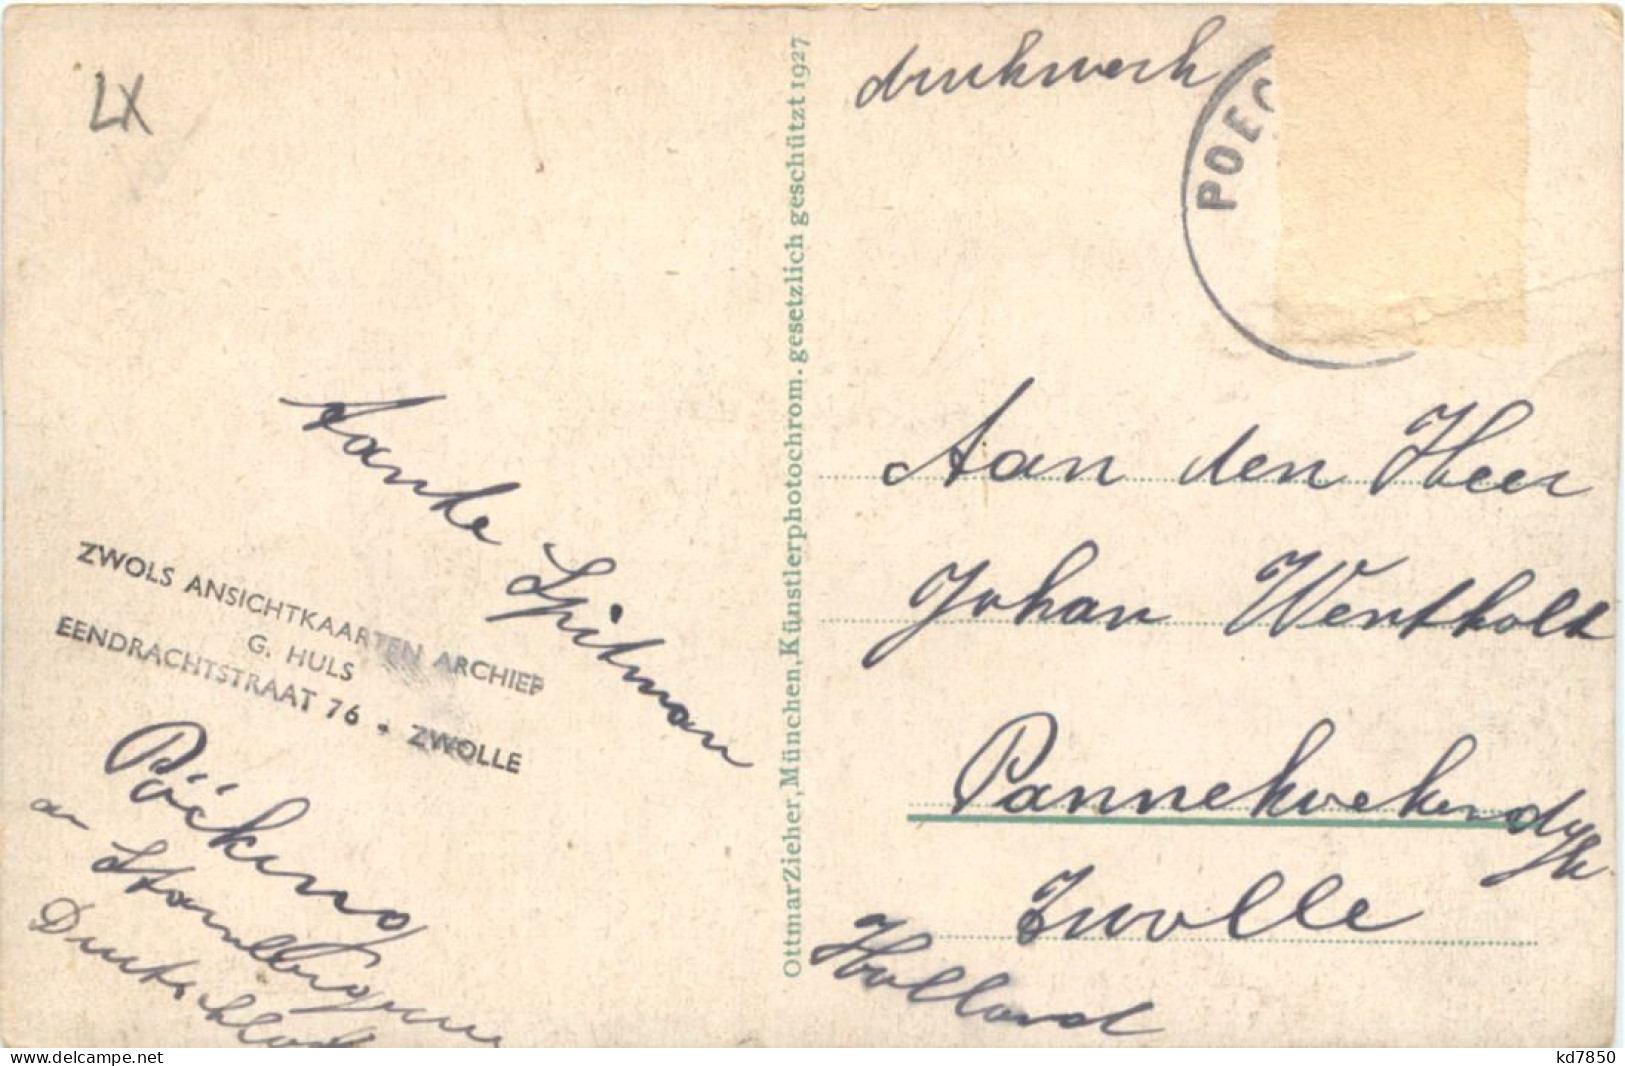 LX
drukwerk
POEC
Tante Spitman
ZWOLS ANSICHTKAARTEN ARCHIEF
G. HULS
EENDRACHTSTRAAT 76 - ZWOLLE
Pöcking
am Starnbergersee
Deutschland
OttmarZieher, München, Künstlerphotochrom. gesetzlich geschützt 1927
Aan den Heer
Johan Wentholt
Pannekoekendyk
Zwolle
Holland
www.delcampe.net
kd7850